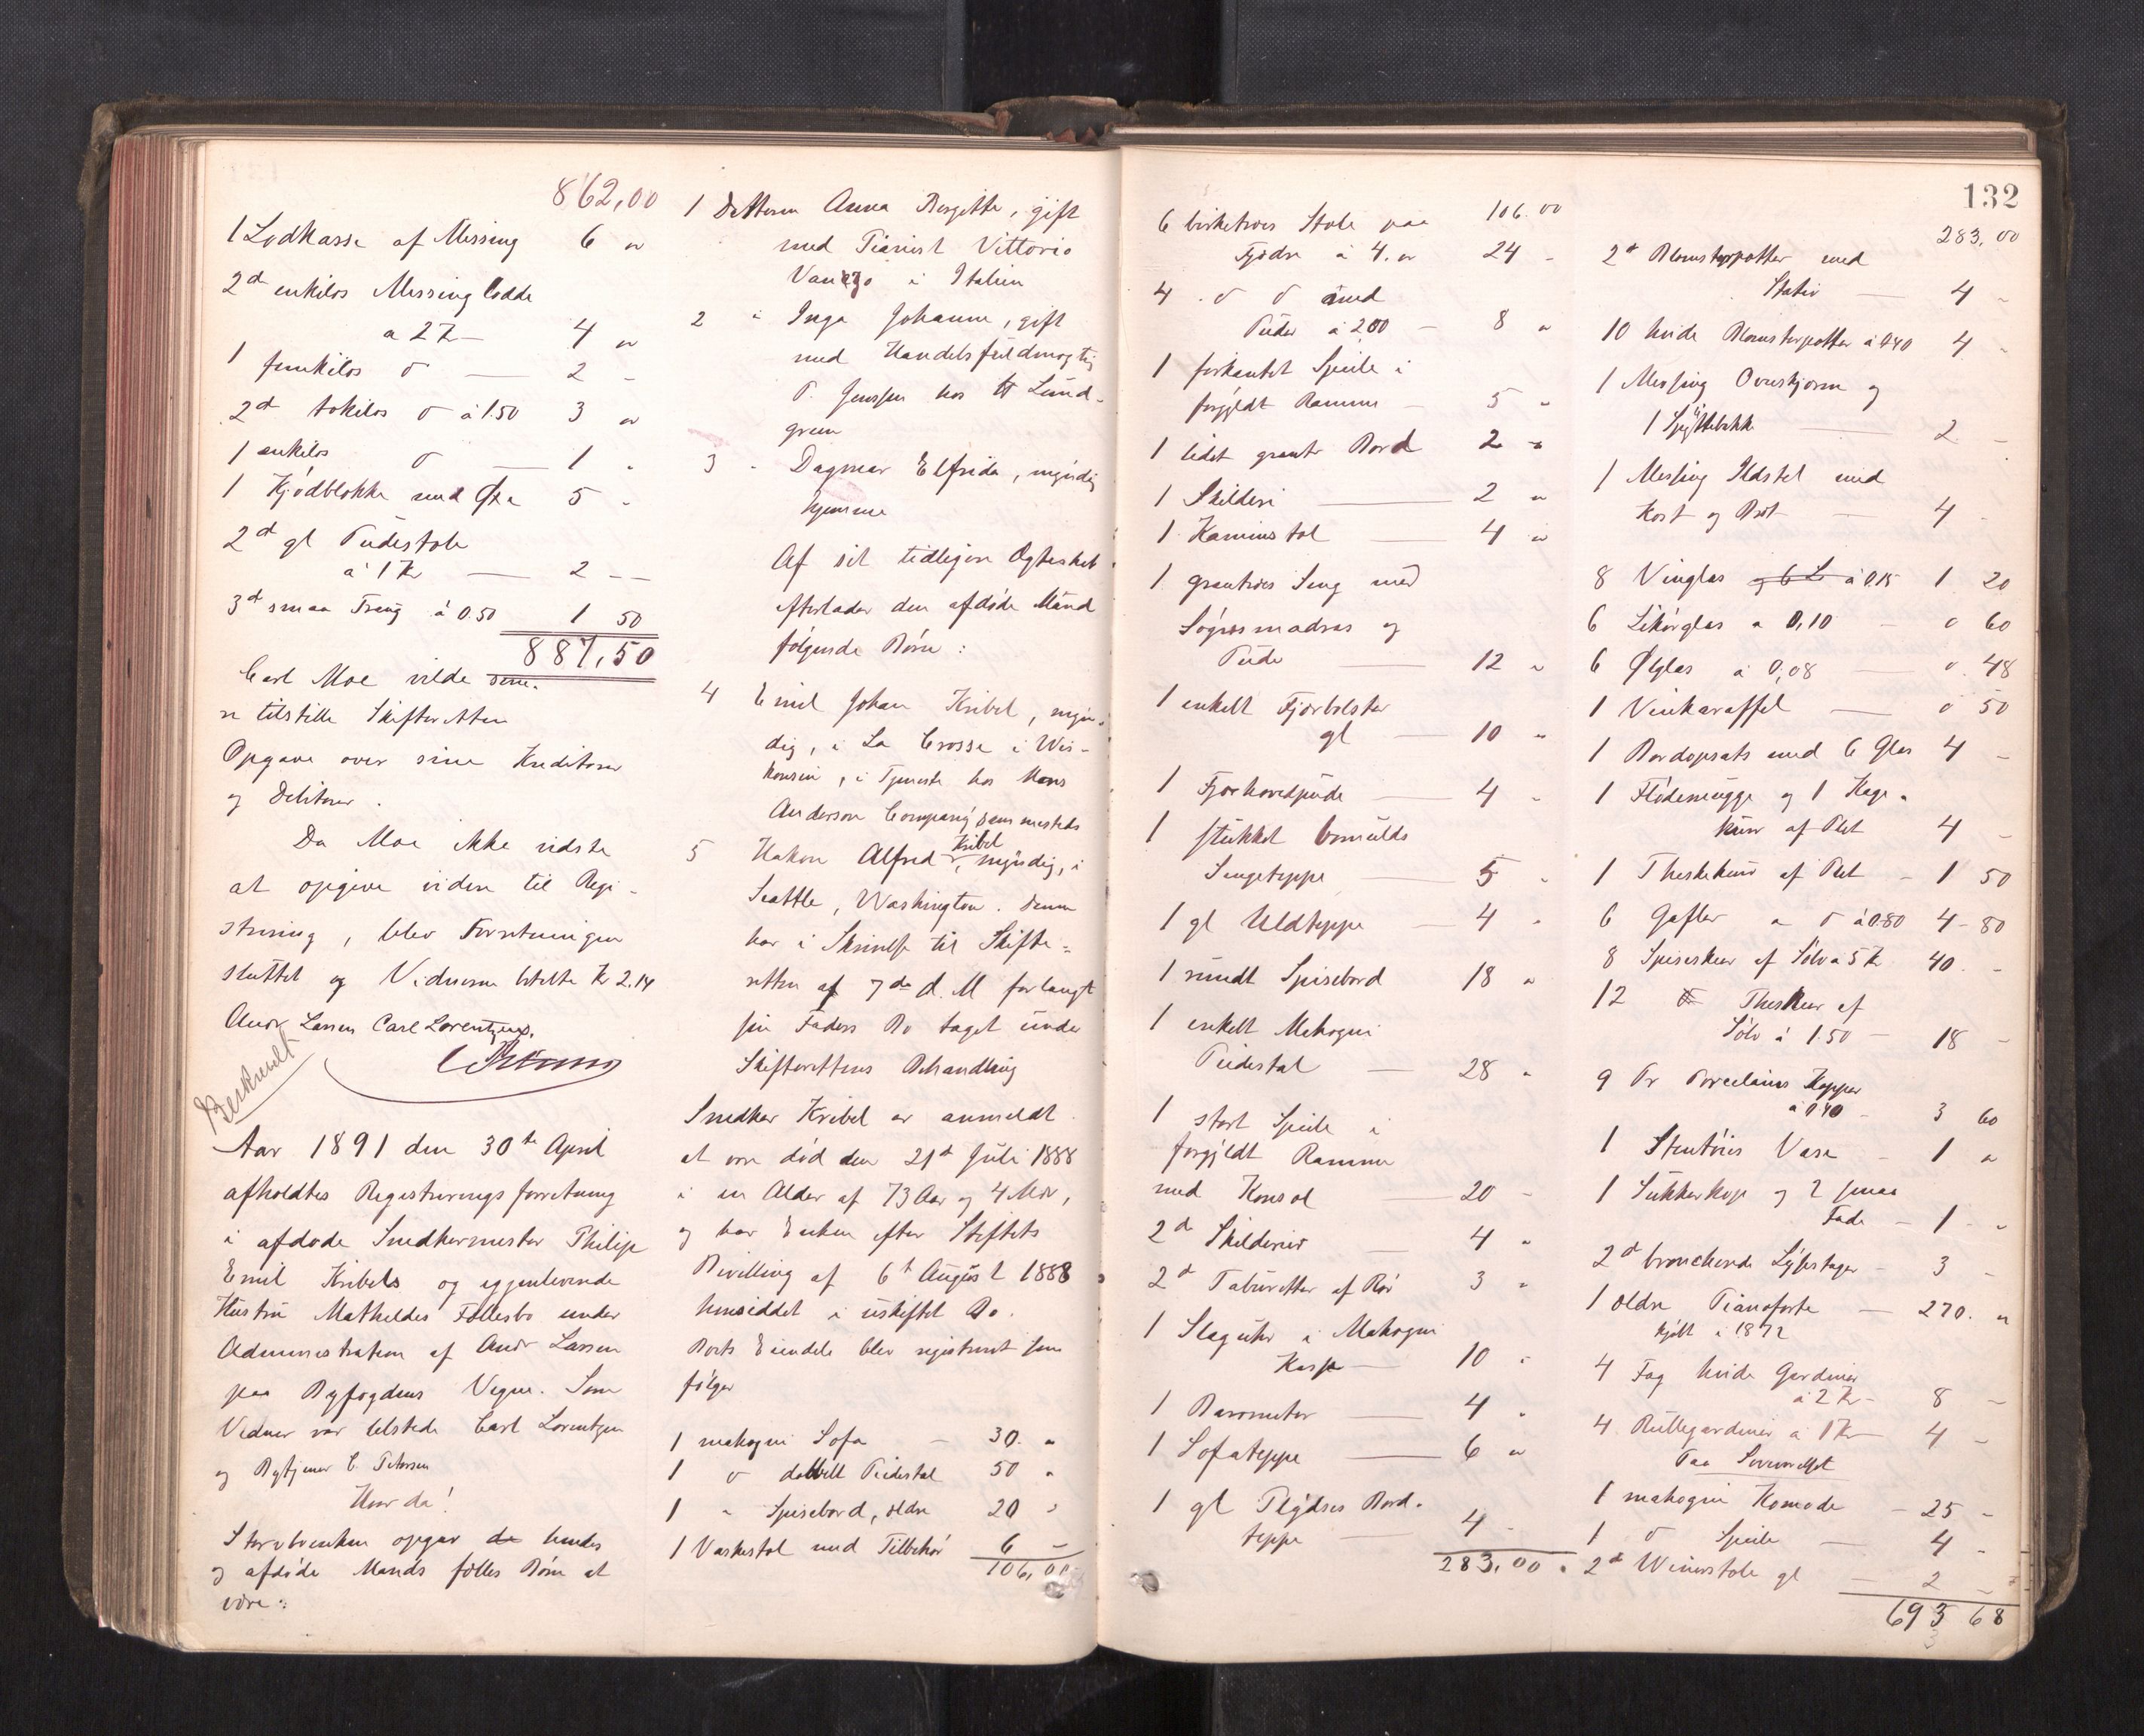 862,00
1 Lodkasse af Messing 6 "
2d enkilos Messinglodde
a 2 Kr — 4 "
1 femkilos d — 2 -
2d tokilos d à 1.50 3 "
1 enkilos d — 1 "
1 Kjödblokke med Øxe 5 -
2d gl Pudestole
à 1 Kr — 2 --
3d smaa Traug à 0.50 1 50
887,50
Carl Moe vilde sene-
re tilstille Skifteretten
Opgave over sine Kreditorer
og Debitorer.
Da Moe ikke vidste
at opgive videre til Regi-
strering, blev Forretningen
sluttet og Vidnerne betalte Kr 2.14
Andr Larsen Carl Lorentzen.
Beskrevet
Aar 1891 den 30te April
afholdtes Registreringsforretning
i afdøde Snedkermester Philip
Emil Kribels og egjenlevende
Hustru Mathildes Fællesbo under
Administration af Andr Larsen
paa Byfogdens Vegne. Som
Vidner var tilstede Carl Lorentzen
og Bytjener C. Petersen
Hvor da!
Stervboenken opgav de hendes
og afdøde Mands fælles Børn at
være:
1 Datteren Anna Birgitte, gift
med Pianist Vittorio
Vanzo i Italien
2 " Inga Johanne, gift
med Handelsfuldmægtig
P. Jenssen hos Lund-
green
3 - Dagmar Elfrida, myndig
hjemme
Af sit tidligere Ægteskab
efterlader den afdøde Mand
følgende Børn:
4 Emil Johan Kribel, myn-
dig, i La Crosse i Wis-
konsin, i Tjeneste hos Mons
Anderson Company sammesteds
5 Hakon Alfred Kribel, myndig, i
Seattle, Washington. Denne
har i Skrivelse til Skifte-
retten af 7de d. M forlangt
sin Faders Bo taget under
Skifterettens Behandling
Snedker Kribel er anmeldt
at være död den 21d Juli 1888
i en Alder af 73 Aar og 4 Mdr,
og har Enken efter Stiftets
Bevilling af 6t August 1888
hensiddet i uskiftet Bo.
Boets Eiendele blev registreret som
følger
1 mahogni Sofa — 30. "
1 d dobbelt Pidestal 50 "
1 " Spisebord, ældre 20 "
1 Vaskestol med Tilbehör 6 -
106,00
106.00
6 birketræes Stole paa
Fjedre à 4. " 24 -
4 . d d med
Puder à 2,00 - 8 "
1 firkantet Speile i
forgyldt Ramme - 5 "
1 lidet grantr Bord 2 "
1 Skilderi — 2 "
1 Kaminstol — 4 "
1 grantræes Seng med
Søgræsmadras og
Pude — 12 "
1 enkelt Fjærbolster
gl — 10 "
1 Fjærhovedpude — 4 -
1 stukket bomulds
Sengeteppe — 5 "
1 gl Uldteppe — 4 "
1 rundt Spisebord 18 "
1 enkelt Mahogni
Pidestal — 28 "
1 stort Speile i
forgyldt Ramme
med Konsol — 20 -
2de Skilderier — 4 "
2d Taburetter af Rör 3 "
1 Slaguhr i Mahogni
Kasse — 10 "
1 Barometer — 4 "
1 Sofateppe — 6 "
1 gl Plydses Bord-
teppe — 4 -
283,00
132
283,00
2d Blomsterpotter med
Stativ — 4 -
10 hvide Blomsterpotter à 0.40 4 -
1 Messing Ovnskjerm og
1 Spyttebakke — 2 -
1 Messing Ildstel med
Kost og Bret — 4 -
8 Vinglas à 0.15 1 20
6 Likörglas a 0,10 - 0 60
6 Ølglas a 0,08 — 0. 48
1 Vinkaraffel — 0 50
1 Bordopsats med 6 Glas 4 -
1 Flödemugge og 1 Kage-
kurv af Plet 4 -
1 Theskekurv af Plet - 1 50
6 Gafler a d à 0.80 4 - 80
8 Spiseskeer af Sølv a 5 Kr 40. -
12 Theskeer af
Sölv à 1.50 — 18 -
9 Pr Porcelains Kopper
à 0.40 - 3 60
1 Stentöies Vase - 1 "
1 Sukkerkop og 2 smaa
Fade - 1 - "
2d broncherede Lysestager - 3 -
1 ældre Pianoforte — 270. "
kjöbt i 1872
4 Fag hvide Gardiner
à 2 Kr - 8 -
4 Rullegardiner à 1 Kr — 4 -
Paa Soveværelset
1 mahogni Komode - 25 -
1 d Speile — 4 -
2d Wienerstole gl — 2 -
693 68
3